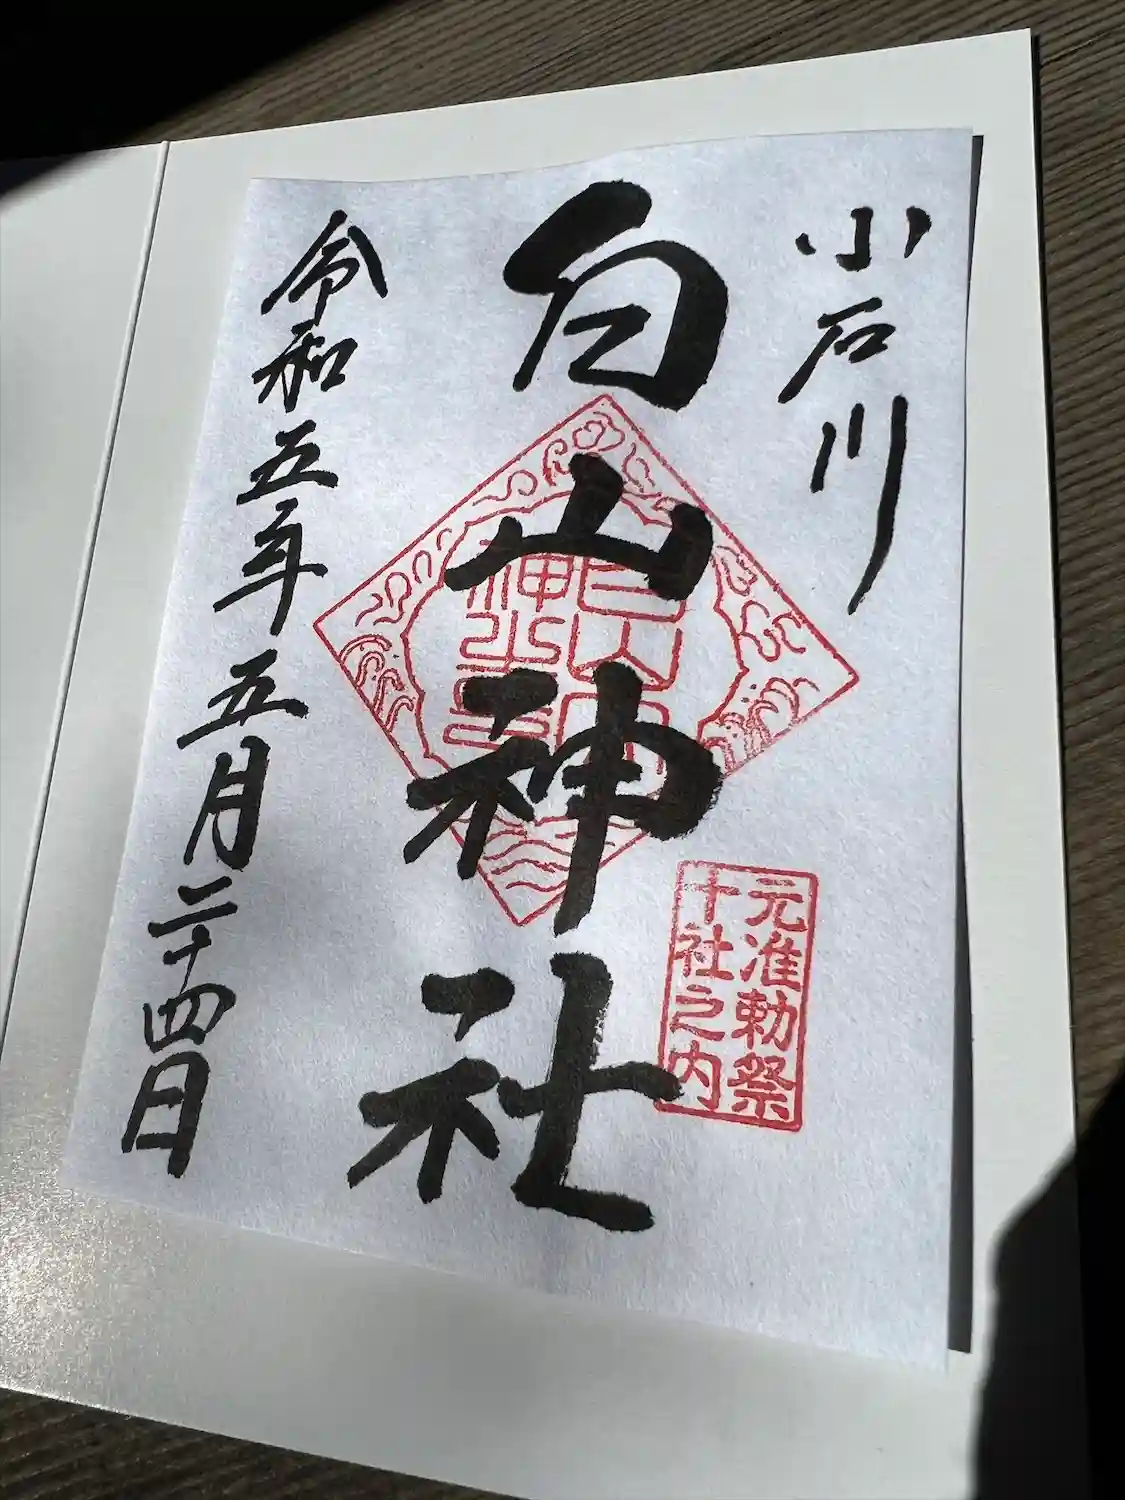 小石川
白山神社
令和五年五月二十四日
元准勅祭
十社之内